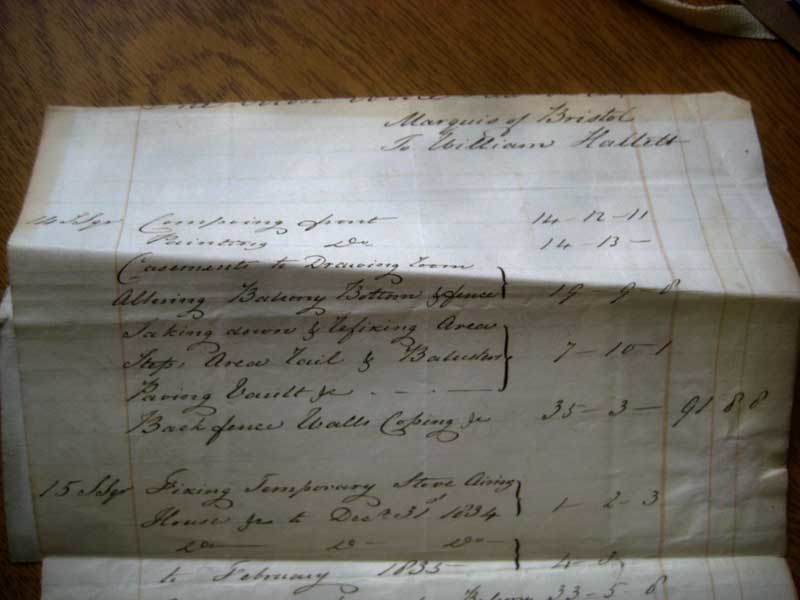 Marquis of Bristol
To William Hallett
14 Sqr Compoing front 14 - 12 - 11
Painting Do 14 - 13 -
Casements to Drawing room
Altering Balcony Bottom & fence } 19 - 9 - 8
Taking down & refixing Area
Steps, Area rail & Balusters } 7 - 10 - 1
Paving Vault &c - - -
Back fence Walls Coping &c 35 - 3 - 91 8 8
15 Sqr Fixing Temporary Stove Airing
House &c to Decr. 31st 1834 } 1 - 2 - 3
Do Do Do }
to February 1835
Balcony 33 - 5 - 6